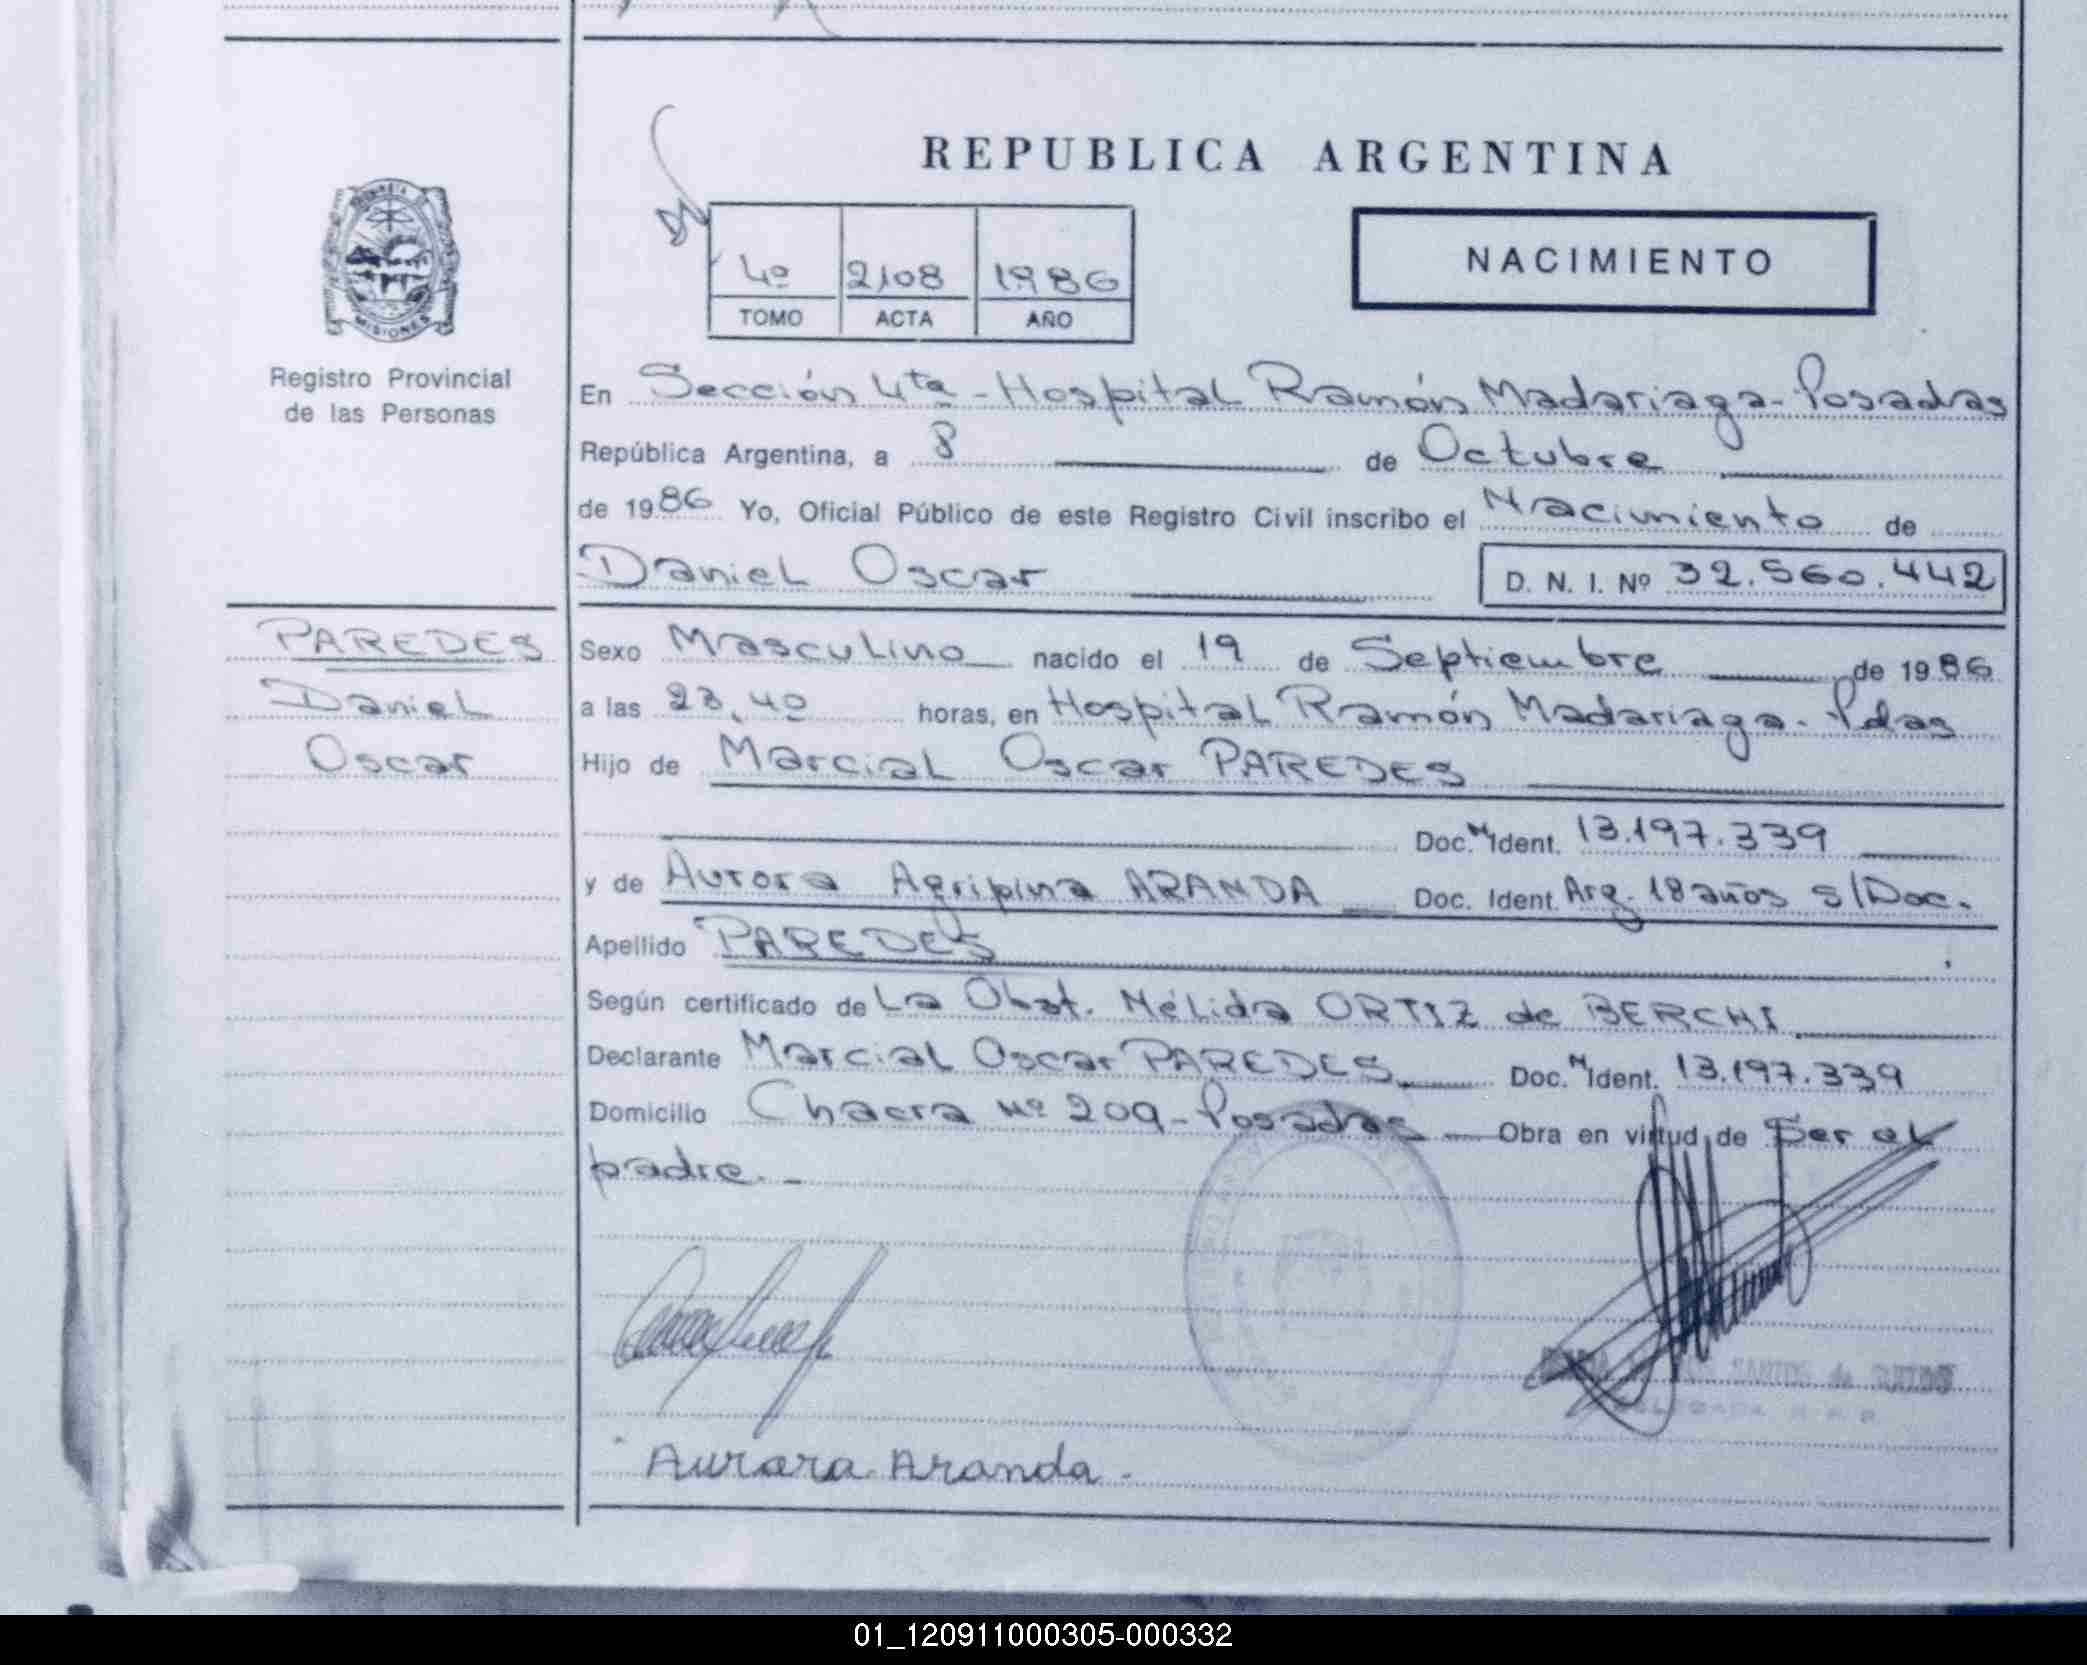 REPUBLICA ARGENTINA
MISIONES
Registro Provincial
de las Personas
4º 2108 1986
TOMO ACTA AÑO
NACIMIENTO
En Sección 4ta - Hospital Ramón Madariaga - Posadas
República Argentina, a 8 de Octubre
de 1986 Yo, Oficial Público de este Registro Civil inscribo el Nacimiento de
Daniel Oscar D. N. I. Nº 32.560.442
PAREDES
Daniel
Oscar
Sexo Masculino nacido el 19 de Septiembre de 1986
a las 23,40 horas, en Hospital Ramón Madariaga - Pdas
Hijo de Marcial Oscar PAREDES
Doc. N Ident. 13.197.339
y de Aurora Agripina ARANDA Doc. Ident. Arg. 18 años s/Doc.
Apellido PAREDES
Según certificado de La Obst. Nélida ORTIZ de BERCHI
Declarante Marcial Oscar PAREDES Doc. N Ident. 13.197.339
Domicilio Chacra Nº 209 - Posadas Obra en virtud de Ser el
padre. -
DELEGADA R. P. P.
Aurora Aranda -
01_120911000305-000332